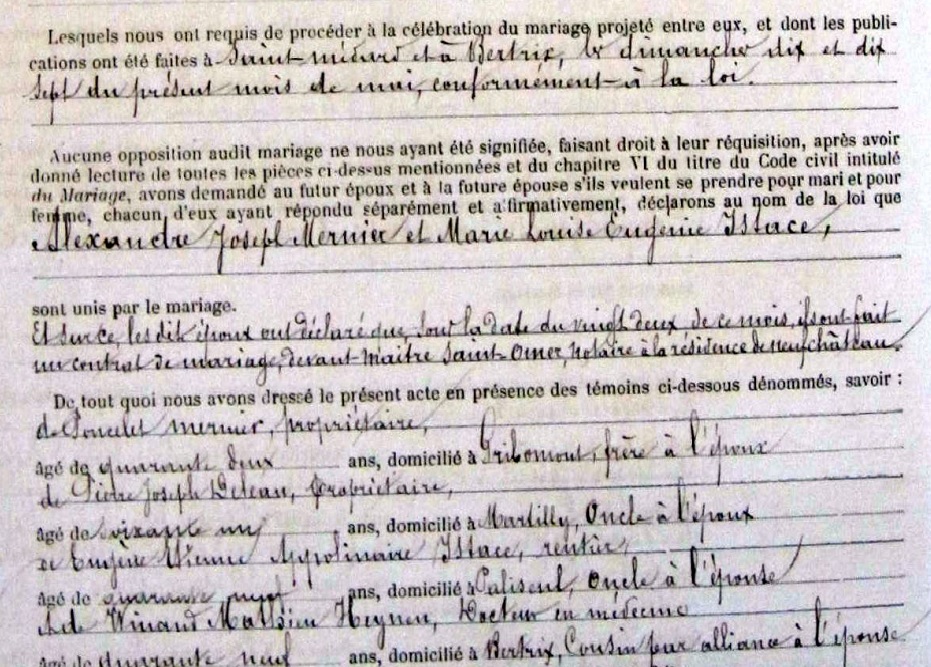 Lesquels nous ont requis de procéder à la célébration du mariage projeté entre eux, et dont les publi-
cations ont été faites à Saint-médard et à Bertrix, les dimanche dix et dix
sept du présent mois de mai, conformément à la loi.
Aucune opposition audit mariage ne nous ayant été signifiée, faisant droit à leur réquisition, après avoir
donné lecture de toutes les pièces ci-dessus mentionnées et du chapitre VI du titre du Code civil intitulé
du Mariage, avons demandé au futur époux et à la future épouse s'ils veulent se prendre pour mari et pour
femme, chacun d'eux ayant répondu séparément et affirmativement, déclarons au nom de la loi que
Alexandre Joseph Mernier et Marie Louise Eugénie Istace,
sont unis par le mariage.
Et sur ce, les dits époux ont déclaré que sous la date du vingt deux de ce mois, ils ont fait
un contrat de mariage, devant maitre Saint-Omer, Notaire à la résidence de neufchâteau.
De tout quoi nous avons dressé le présent acte en présence des témoins ci-dessous dénommés, savoir :
de Poncelet mernier, propriétaire,
âgé de quarante deux ans, domicilié à Pribomont, frère à l'époux
de Pierre Joseph propriétaire,
âgé de soixante neuf ans, domicilié à Martilly, Oncle à l'époux
de Eugène Etienne Appolinaire Istace, rentier,
âgé de quarante neuf ans, domicilié à Caliseul, Oncle à l'épouse
et de Winand Mathieu Heynen, Docteur en médecine
âgé de quarante neuf ans, domicilié à Bertrix, Cousin par alliance à l'épouse